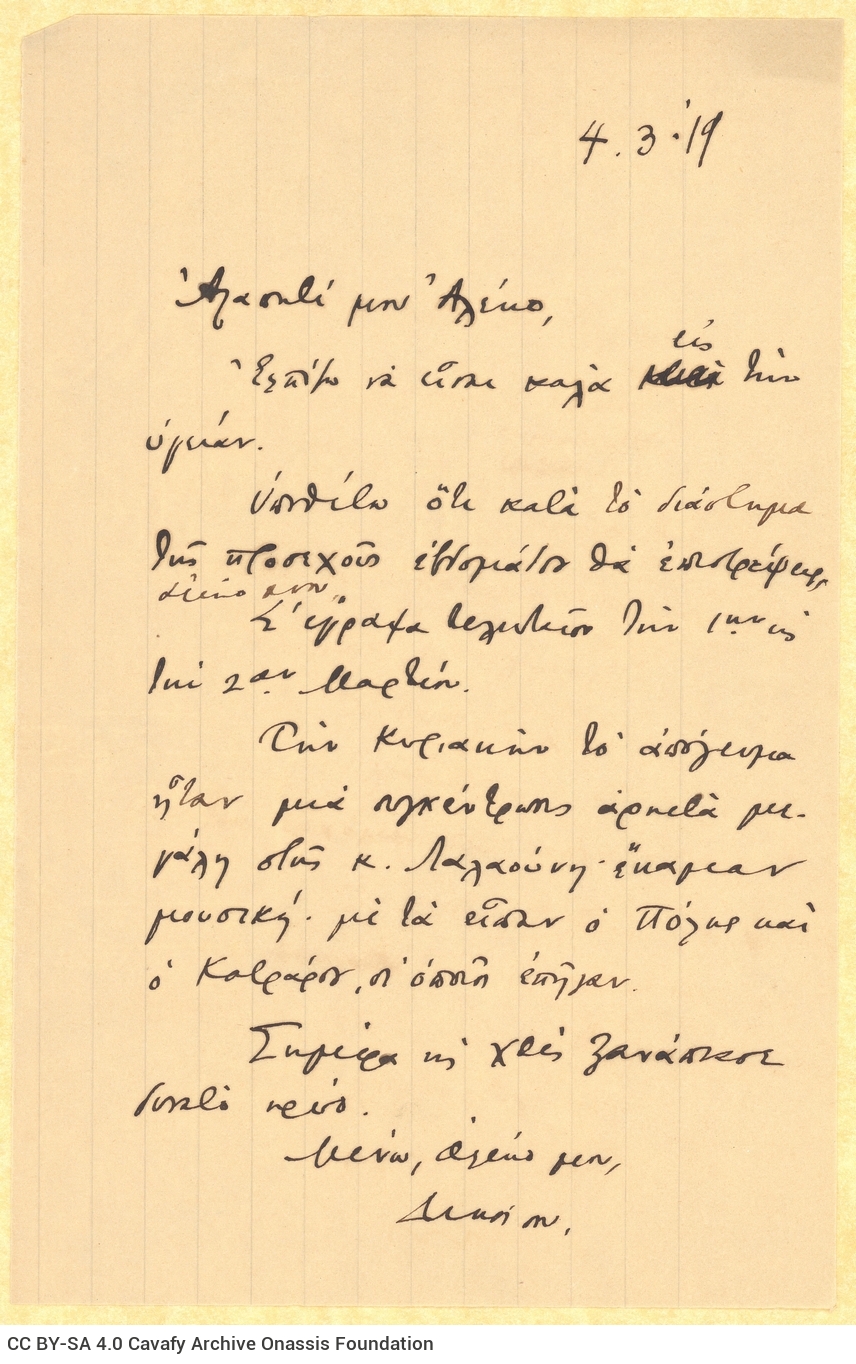 4.3.'19
Ἀγαπητέ μου Ἀλέκο,
Ἐλπίζω νὰ εἶσαι καλὰ εἰς τὴν
ὑγείαν.
Ὑποθέτω ὅτι κατὰ τὸ διάστημα
τῆς προσεχοῦς ἑβδομάδος θὰ ἐπιστρέψεις,
Ἀλέκο μου.
Σ' ἔγραψα τελευταῖον τὴν 1ην κὶ
τὴ 2αν Μαρτίου.
Τὴν Κυριακὴν τὸ ἀπόγευμα
ἦταν μιὰ συγκέντρωσις ἀρκετὰ με-
γάλη στῆς κ. Λαλαούνη· ἔκαμαν
μουσική· μὲ τὰ εἶπαν ὁ Πόλης καὶ
ὁ Κατράρου, οἱ ὁποῖοι ἐπῆγαν.
Σήμερα κὶ χθὲς ξανάπιασε
δυνατὸ κρύο.
Μένω, Ἀλέκο μου,
Δικός σου,
CC BY-SA 4.0 Cavafy Archive Onassis Foundation